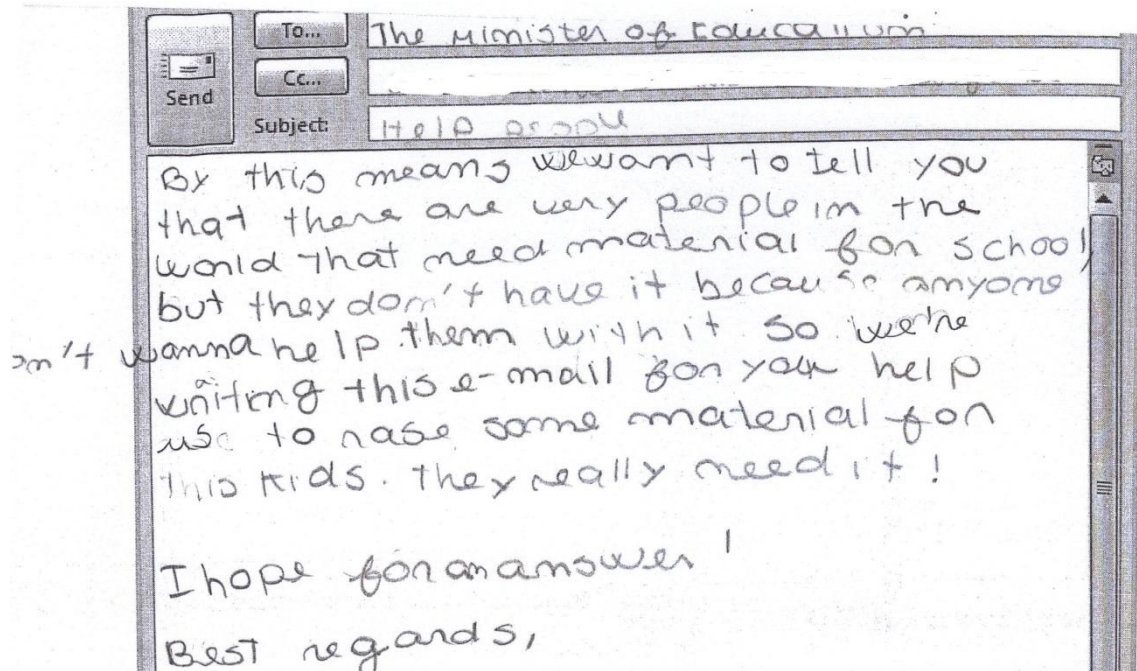 To... The Minister of Education
Cc...
Send
Subject: Help people
By this means we want to tell you
that there are very people in the
world that need material for school,
but they don't have it because anyone
don't wanna help them with it so we're
writing this e-mail for you help
us to rase some material for
this kids. They really need it!
I hope for an answer!
Best regards,